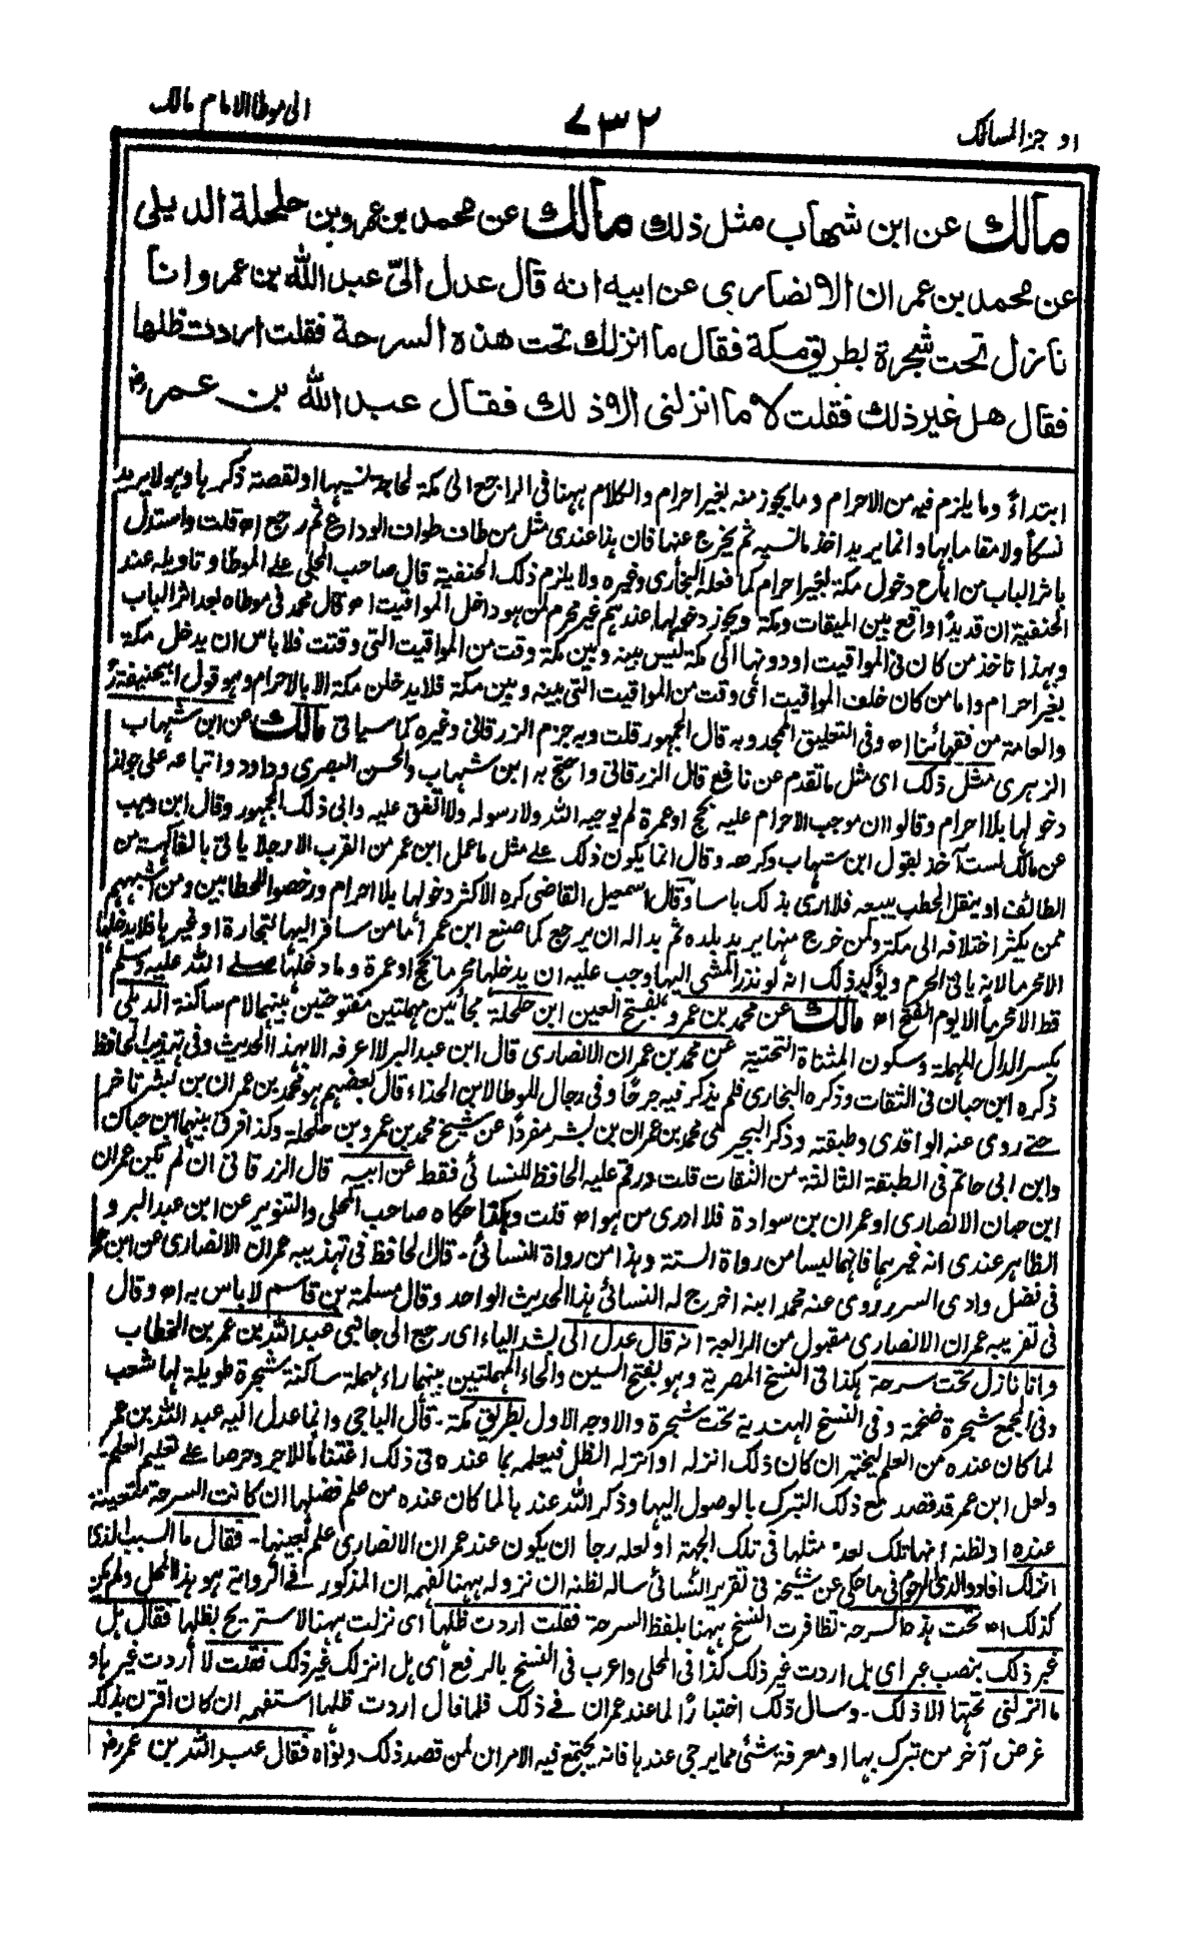 اوجز المسالك
٧٣٢
الى موطا الامام مالك
مالك عن ابن شهاب مثل ذلك مالك عن محمد بن عمرو بن حلحلة الديلى
عن محمد بن عمران الانصارى عن ابيه انه قال عدل الىّ عبد الله بن عمر وانا
نازل تحت شجرة بطريق مكة فقال ما انزلك تحت هذه السرحة فقلت اردت ظلها
فقال هل غير ذلك فقلت لا ما انزلنى الا ذلك فقال عبد الله بن عمر رض
ابتداءً وما يلزم فيه من الاحرام وما يجوز منه بغير احرام والكلام ههنا فى الراجع الى مكة لحاجة نسيها او لقصة ذكرها وهو لا يريد
نسكاً ولا مقاما بها وانما يريد اخذ ما نسيه ثم يخرج عنها فان هذا عندى مثل من طاف طواف الوداع ثم رجع اه قلت واستدل
باثر الباب من اباح دخول مكة بغير احرام كما فعله البخارى وغيره ولا يلزم ذلك الحنفية قال صاحب المحلى على الموطأ وتاويله عند
الحنفية ان قديداً واقع بين الميقات ومكة ويجوز دخولها عندهم غير محرم لمن هو داخل المواقيت اه قال محمد فى موطاه بعد اثر الباب
وبهذا ناخذ من كان فى المواقيت او دونها الى مكة ليس بينه وبين مكة وقت من المواقيت التى وقتت فلا باس ان يدخل مكة
بغير احرام واما من كان خلف المواقيت اى وقت من المواقيت التى بينه وبين مكة فلا يدخلن مكة الا بالاحرام وهو قول ابيحنيفةؒ
والعامة من فقهائنا اه وفى التعليق الممجد وبه قال الجمهور قلت وبه جزم الزرقانى وغيره كما سياتى مالك عن ابن شهاب
الزهرى مثل ذلك اى مثل ما تقدم عن نافع قال الزرقانى واحتج به ابن شهاب والحسن البصرى وداود واتباعه على جواز
دخولها بلا احرام وقالوا ان موجب الاحرام عليه بحج او عمرة لم يوجبه الله ولا رسوله ولا اتفق عليه وابى ذلك الجمهور وقال ابن وهب
عن مالك لست آخذ بقول ابن شهاب وكرهه وقال انما يكون ذلك على مثل ما عمل ابن عمر من القرب الا رجلا ياتى بالفاكهة من
الطائف او ينقل الحطب يبيعه فلا ارى بذلك باسا وقال اسمعيل القاضى كره الاكثر دخولها بلا احرام ورخصوا للحطابين ومن اشبههم
ممن يكثر اختلافه الى مكة ولمن خرج منها يريد بلده ثم بدا له ان يرجع كما صنع ابن عمر اما من سافر اليها لتجارة او غيرها فلا يدخلها
الا محرما لانه ياتى الحرم ويؤكد ذلك انه لو نذر المشى اليها وجب عليه ان يدخلها محرما بحج او عمرة وما دخلها صلى الله عليه وسلم
قط الا محرماً الا يوم الفتح اه مالك عن محمد بن عمرو بفتح العين ابن حلحلة بحائين مهملتين مفتوحتين بينهما لام ساكنة الديلى
بكسر الدال المهملة وسكون المثناة التحتية عن محمد بن عمران الانصارى قال ابن عبد البر لا اعرفه الا بهذا الحديث وفى تهذيب الحافظ
ذكره ابن حبان فى الثقات وذكره البخارى فلم يذكر فيه جرحاً وفى رجال الموطا لابن الحذاء قال بعضهم هو محمد بن عمران بن بشر تاخر
حتى روى عنه الواقدى وطبقته وذكر البجيرمى محمد بن عمران بن بشر مفرداً عن شيخ محمد بن عمرو بن حلحلة وكذا فرق بينهما ابن حبان
وابن ابى حاتم فى الطبقة الثالثة من الثقات قلت ورقم عليه الحافظ للنسائى فقط عن ابيه قال الزرقانى ان لم تكن عمران
ابن حبان الانصارى او عمران بن سوادة فلا ادرى من هو اه قلت وهكذا حكاه صاحب المحلى والتنوير عن ابن عبد البر و
الظاهر عندى انه غيرهما فانهما ليسا من رواة الستة وهذا من رواة النسائى - قال الحافظ فى تهذيبه عمران الانصارى عن ابن عمر
فى فضل وادى السرر روى عنه محمد ابنه اخرج له النسائى هذا الحديث الواحد وقال مسلمة بن قاسم لا باس به اه وقال
فى تقريبه عمران الانصارى مقبول من الرابعة انه قال عدل الى بشد الياء اى رجع الى جانبى عبد الله بن عمر بن الخطاب
وانا نازل تحت سرحة هكذا فى النسخ المصرية وهو بفتح السين والحاء المهملتين بينهما راء مهملة ساكنة شجرة طويلة لها شعب
وفى المجمع شجرة ضخمة وفى النسخ الهندية تحت شجرة والاوجه الاول بطريق مكة - قال الباجى وانما عدل اليه عبد الله بن عمر
لما كان عنده من العلم ليختبر ان كان ذلك انزله او انزله الظل فيعلمه بما عنده فى ذلك اغتناما للاجر وحرصا على تعليم العلم
ولعل ابن عمر قد قصد مع ذلك التبرك بالوصول اليها وذكر الله عندها لما كان عنده من علم فضلها ان كانت السرحة متعينة
عنده او لظنه انها تلك لعدم مثلها فى تلك الجهة او لعله رجا ان يكون عند عمران الانصارى علم بعينها - فقال ما السبب الذى
انزلك افاد والدى المرحوم فى ما حكى عن شيخه فى تقرير النسائى ساله لظنه ان نزوله ههنا لفهم ان المذكور فى الرواية هو هذا المحل ولم يكن
كذلك اه تحت هذه السرحة تظافرت النسخ ههنا بلفظ السرحة فقلت اردت ظلها اى نزلت ههنا لاستريح بظلها فقال هل
غير ذلك بنصب غير اى هل اردت غير ذلك كذا فى المحلى واعرب فى النسخ بالرفع اى هل انزلك غير ذلك فقلت لا اردت غيرها و
ما انزلنى تحتها الا ذلك - وسال ذلك اختباراً لما عند عمران فى ذلك فلما قال اردت ظلها استفهمه ان كان اقترن بذلك
غرض آخر من تبرك بها او معرفة شئ مما يرجى عندها فانه يجتمع فيه الامران لمن قصد ذلك ونواه فقال عبد الله بن عمر رض